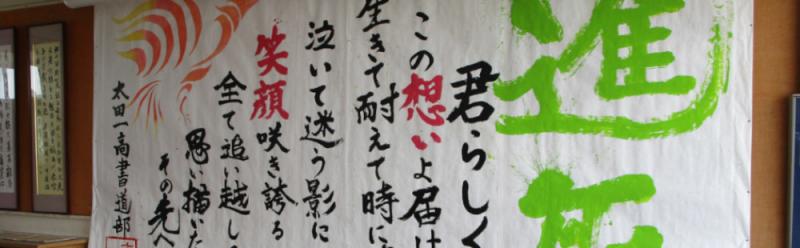 進
君らしく
この想いよ届け
生きて耐えて時に
泣いて迷う影に
笑顔咲き誇る
全て追い越し
思い描いた
その先へ
太田一高書道部